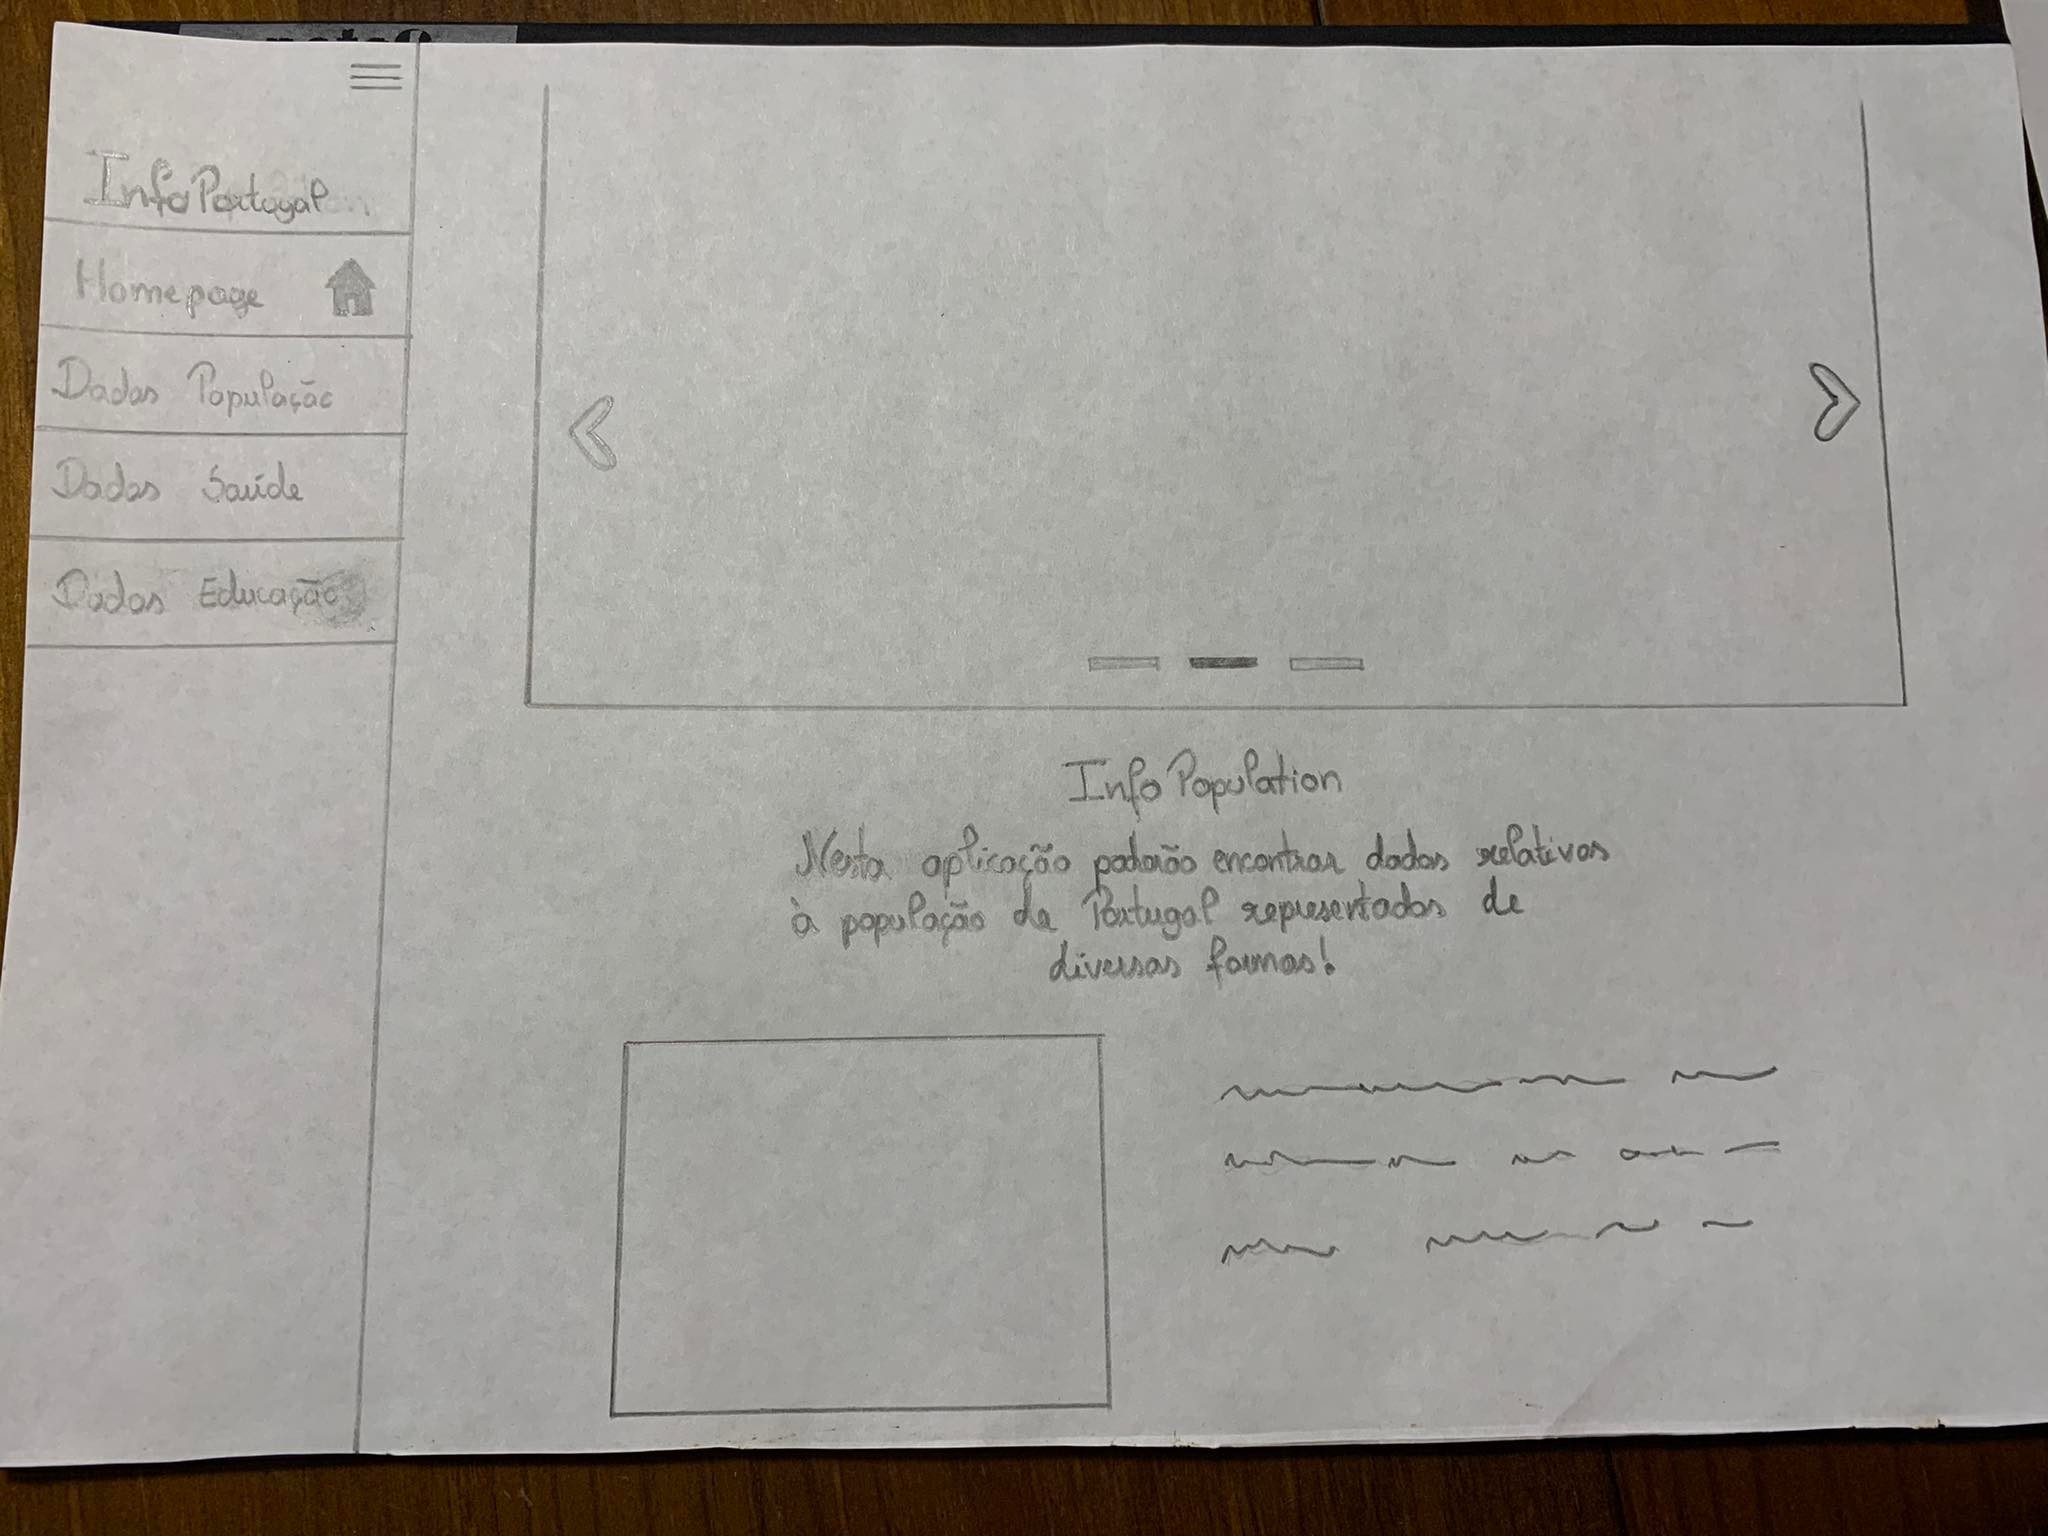 InfoPortugal
Homepage
Dados População
Dados Saúde
Dados Educação
InfoPopulation
Nesta aplicação poderão encontrar dados relativos
à população de Portugal representados de
diversas formas!